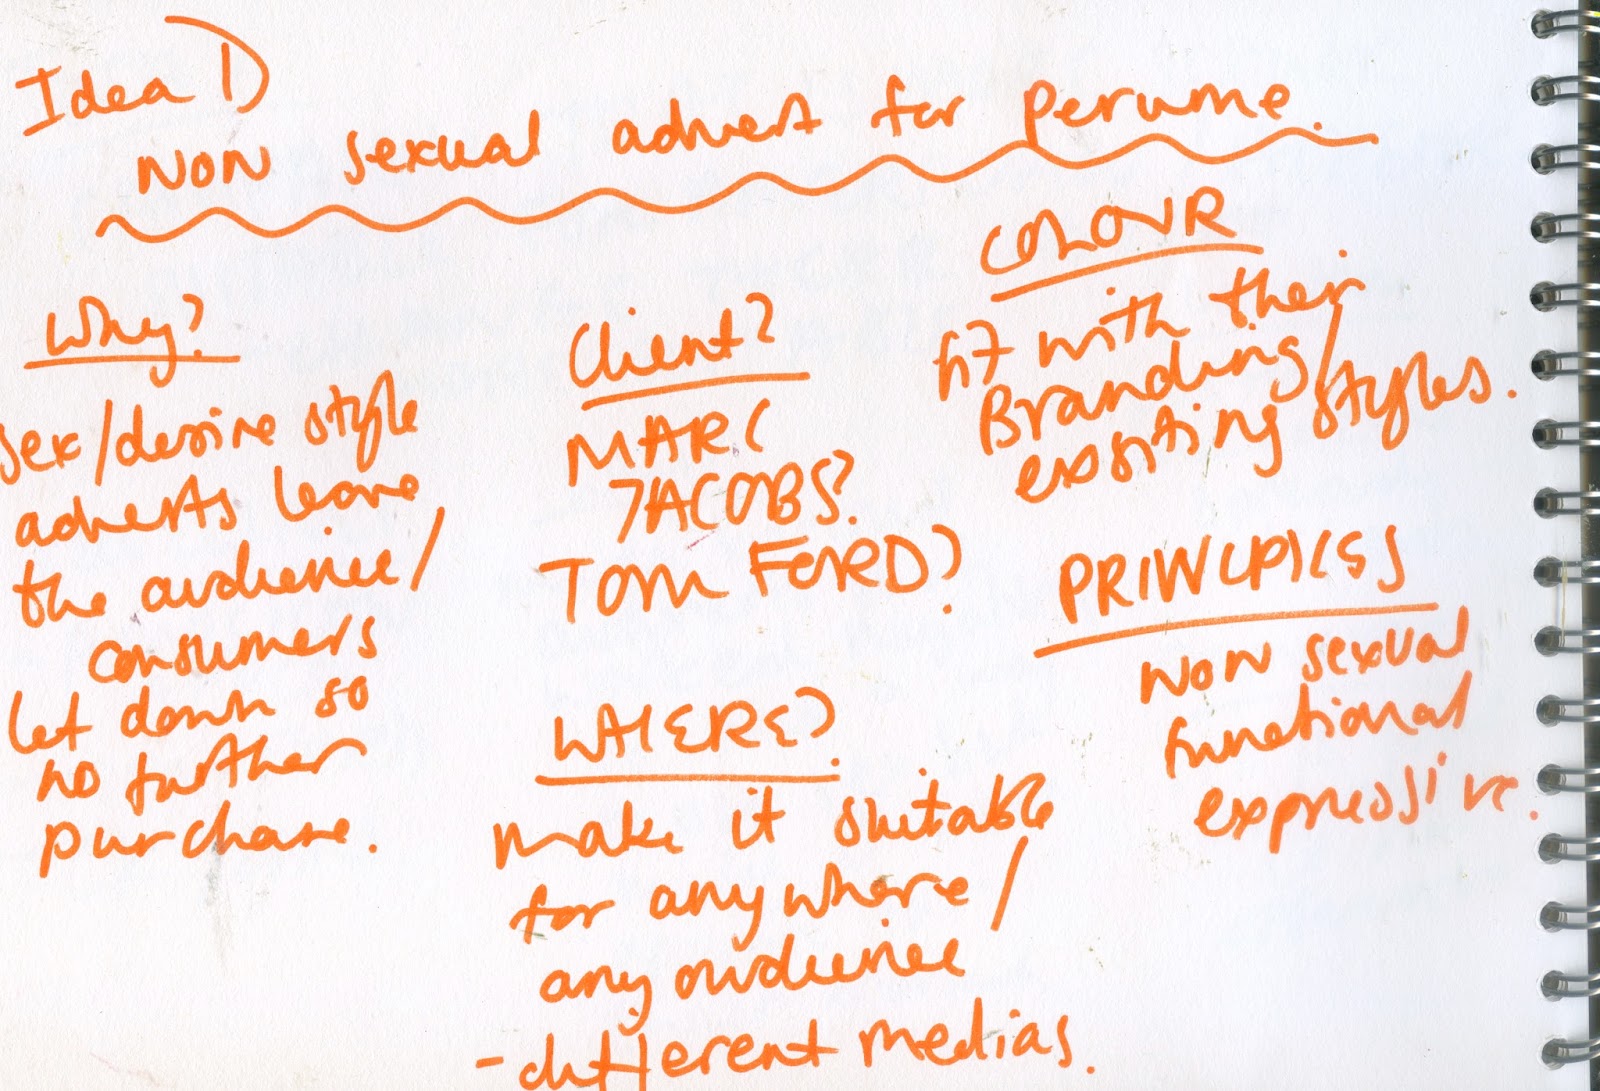 Idea 1)
NON sexual advert for perume.
Why?
sex/desire style
adverts leave
the audience/
consumers
let down so
no further
purchase.
Client?
MARC
JACOBS?
TOM FORD?
WHERE?
make it suitable
for anywhere/
any audience
- different medias.
COLOUR
fit with their
Branding/
exsiting styles.
PRINCIPLES
NON sexual
functional
expressive.